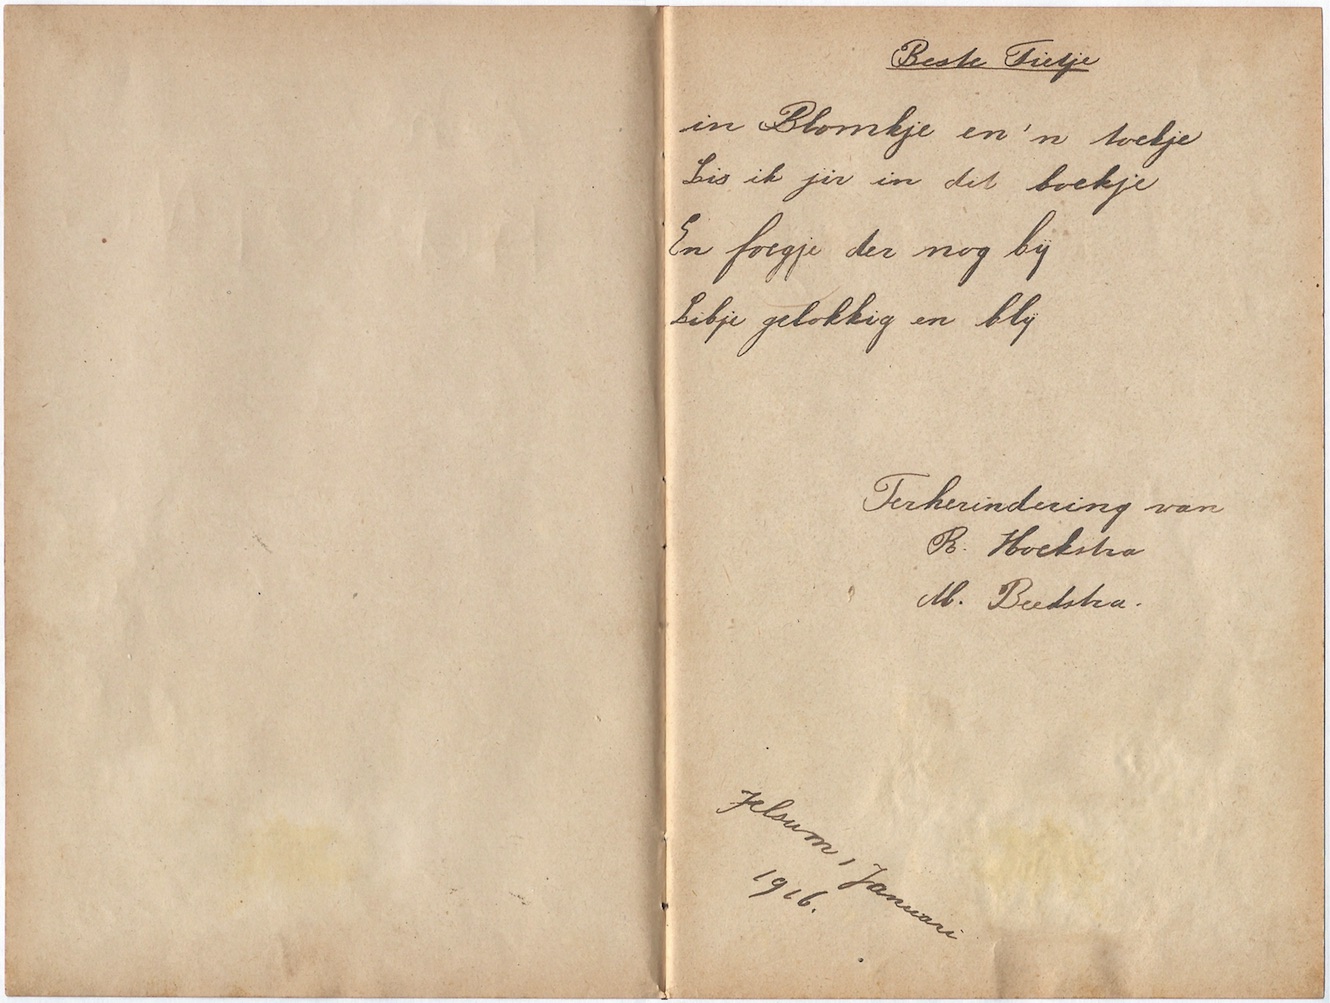 Beste Tietje
in Blomkje en 'n toekje
Lis ik jir in dit boekje
En foegje der nog bij
Libje gelokkig en blij
Terherindering van
R. Hoekstra
M. Beedstra.
Jelsum, Januari
1916.